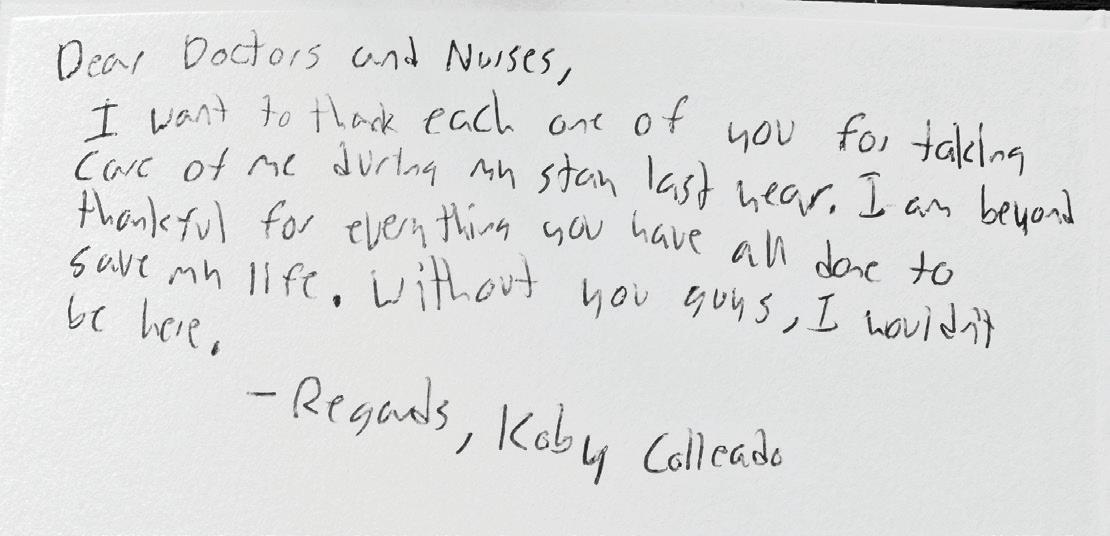 Dear Doctors and Nurses,
I want to thank each one of you for taking
care of me during my stay last year. I am beyond
thankful for everything you have all done to
save my life. Without you guys, I wouldn't
be here.
- Regards, Koby Colleado